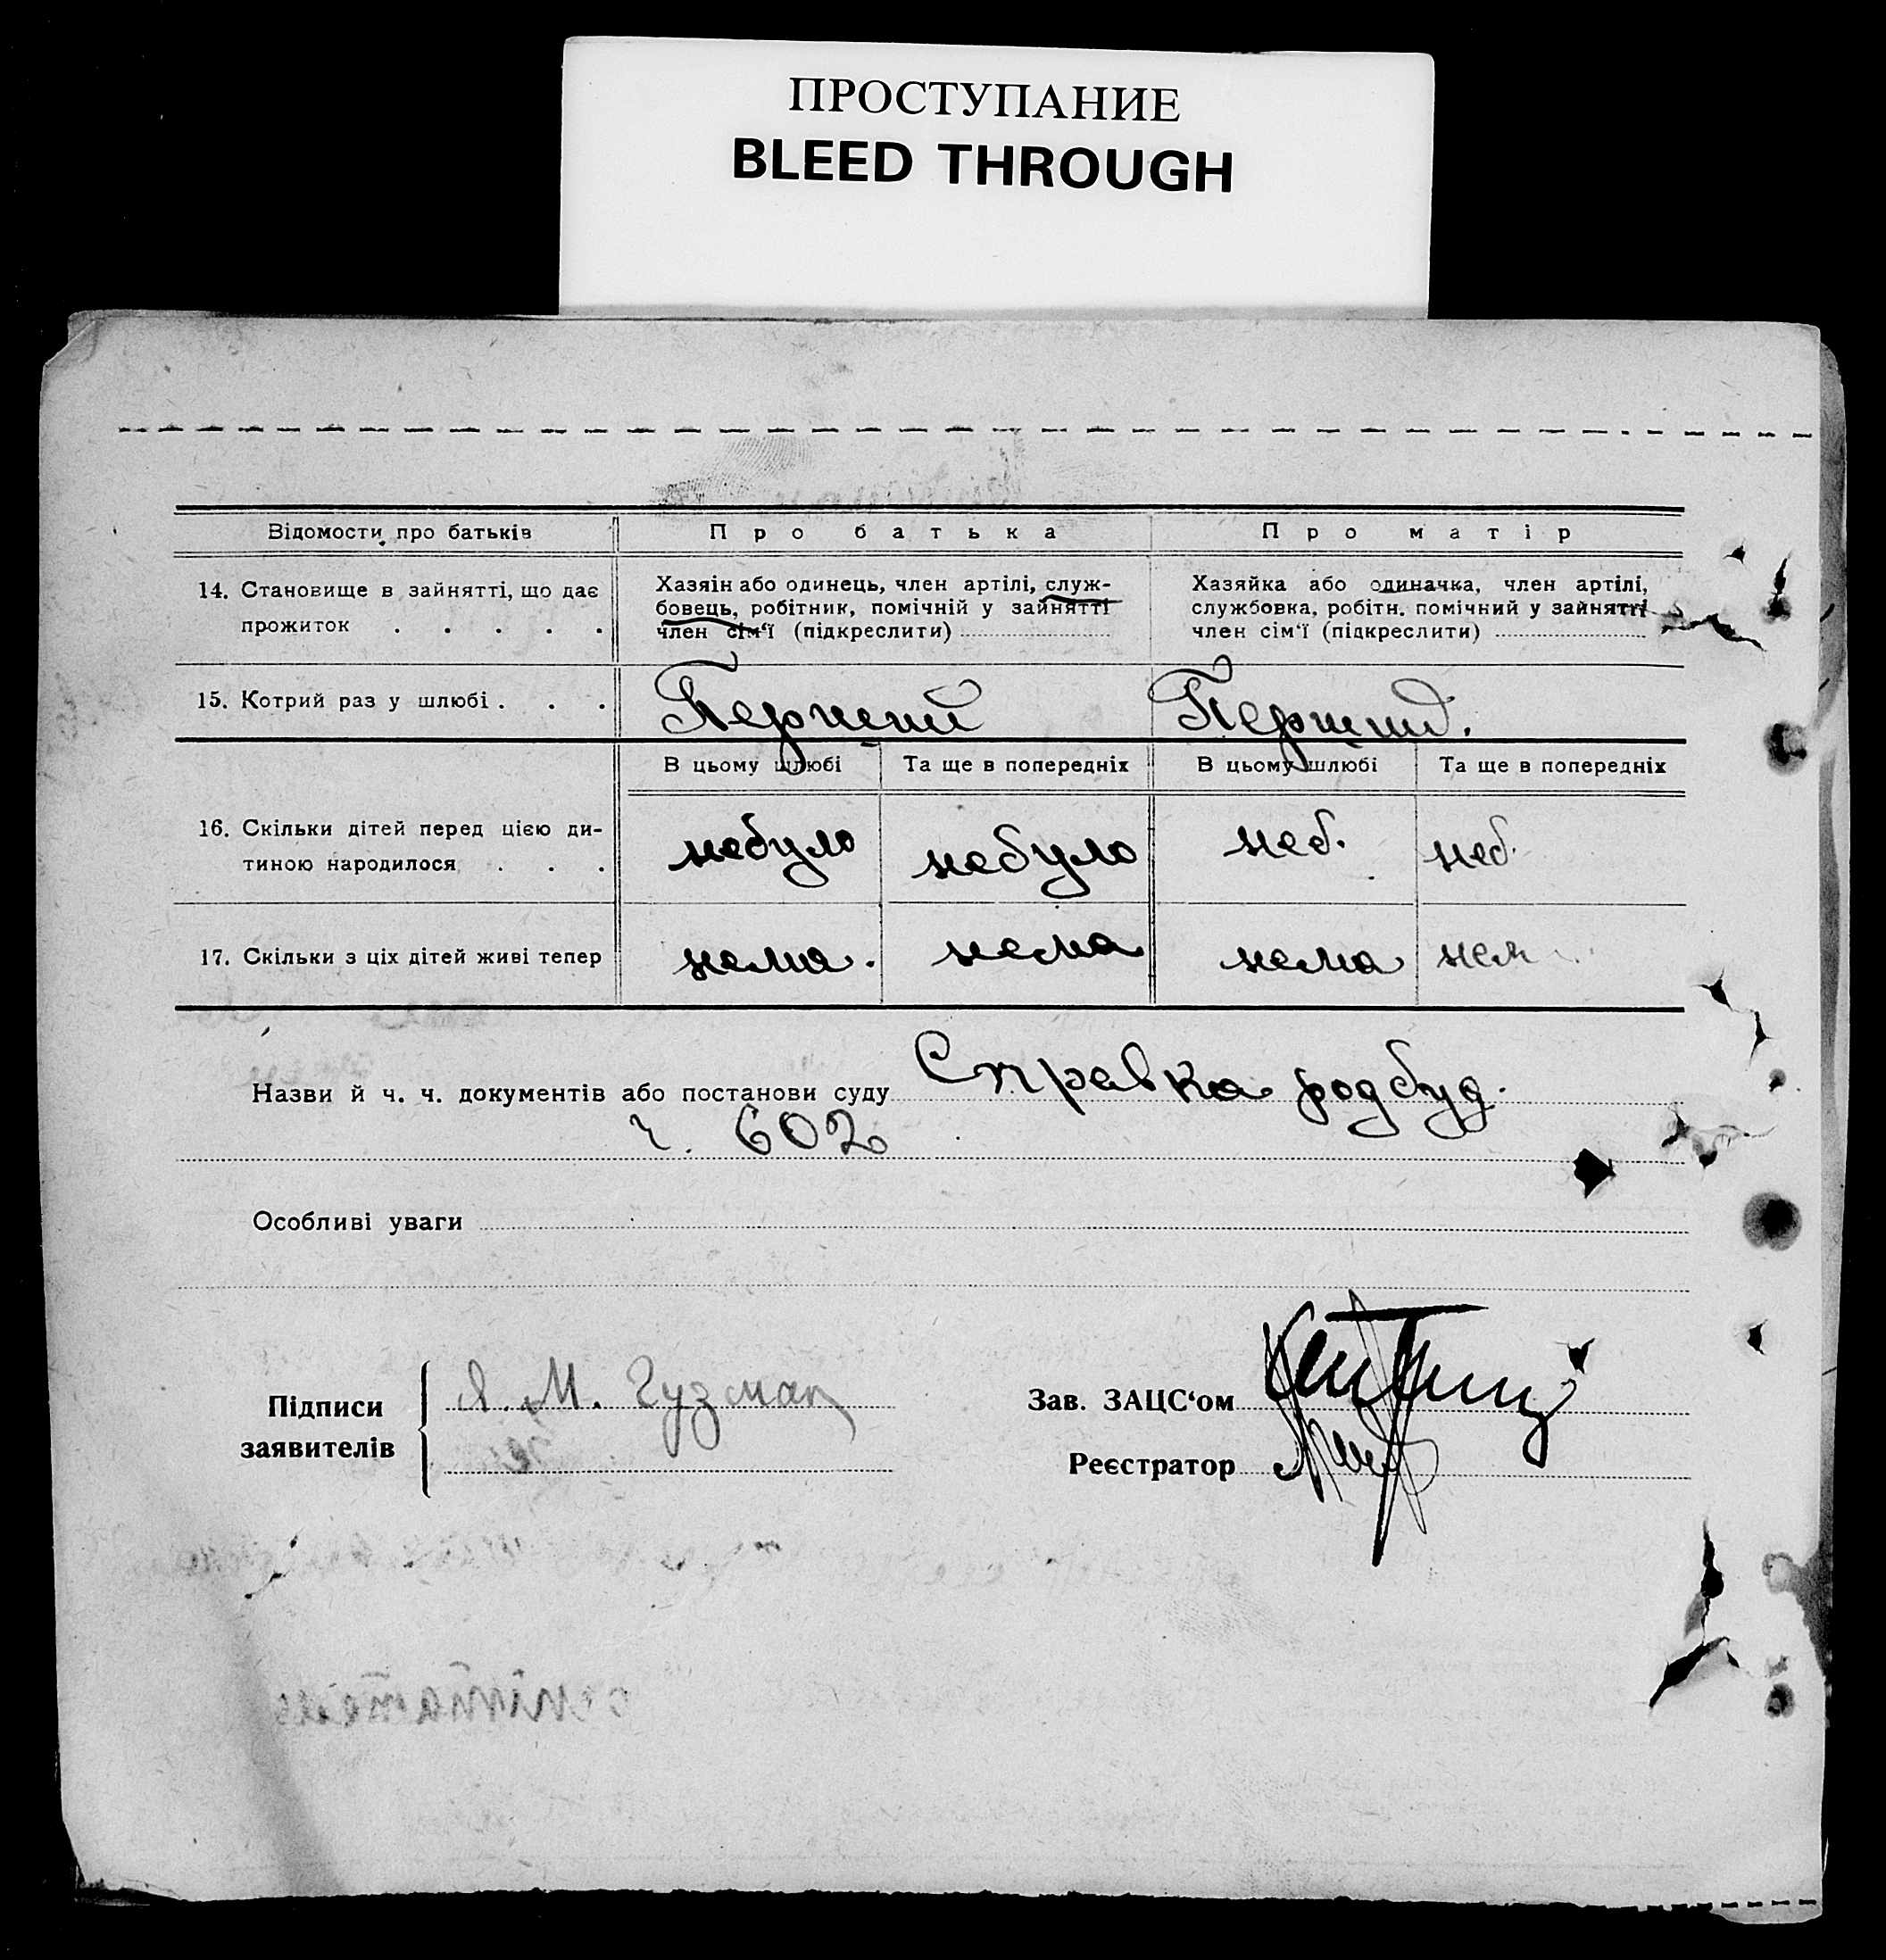 ПРОСТУПАНИЕ
BLEED THROUGH
Відомости про батьків Про батька Про матір
14. Становище в зайнятті, що дає прожиток . . . . .
Хазяін або одинець, член артілі, служ-
бовець, робітник, помічній у зайнятті
член сім‘ї (підкреслити)
Хазяйка або одиначка, член артілі,
службовка, робітн. помічний у зайнятті
член сім‘ї (підкреслити)
15. Котрий раз у шлюбі . . . Перший Перший.
В цьому шлюбі Та ще в попередніх В цьому шлюбі Та ще в попередніх
16. Скільки дітей перед цією ди-
тиною народилося . . . небуло небуло неб. неб.
17. Скільки з ціх дітей живі тепер нема. нема нема нем
Назви й ч. ч. документів або постанови суду Справка родбуд.
ч. 602
Особливі уваги
Підписи
заявителів
Я. М. Гузман
Зав. ЗАЦС‘ом
Реєстратор